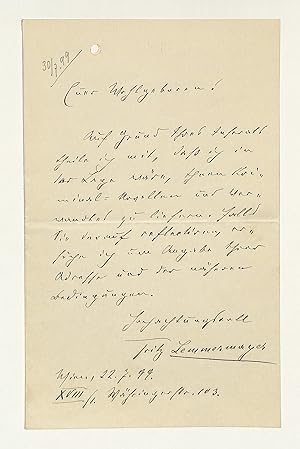 30/7.99
Euer Wohlgeboren!
Auf Grund Ihres Inserats
theile ich mit, daß ich in
der Lage wäre, Ihnen Kri-
minal-Novellen und Ver-
wandtes zu liefern. Falls
Sie darauf reflectiren, er-
suche ich um Angabe Ihrer
Adresse und der näheren
Bedingungen.
Hochachtungsvoll
Fritz Lemmermayer
Wien, 22.7.99.
XVIII/1. Währingerstr. 103.